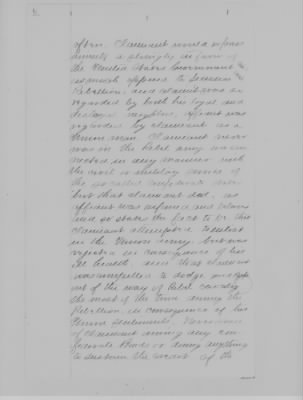 often. Claimant would express
himself strongly in favor of
the United States Government
opposed to Secession
Rebellion. and claimant was so
regarded by both his loyal and
disloyal neighbors, affiant was
regarded by claimant as a
Union man. Claimant never
was in the Rebel army nor con-
nected in any manner with
the civil or military service of
the so called Confederate
but that claimant did, as
affiant was informed and believes
and so states the fact to be that
Claimant attempted to enlist
in the Union army but was
rejected in consequence of his
ill health also that claimant
was compelled to dodge and keep
out of the way of Rebel Cavalry
the most of the time during the
Rebellion in consequence of his
Union sentiments.
of claimant owning any Con-
federate Bonds or doing anything
to sustain the credit of the